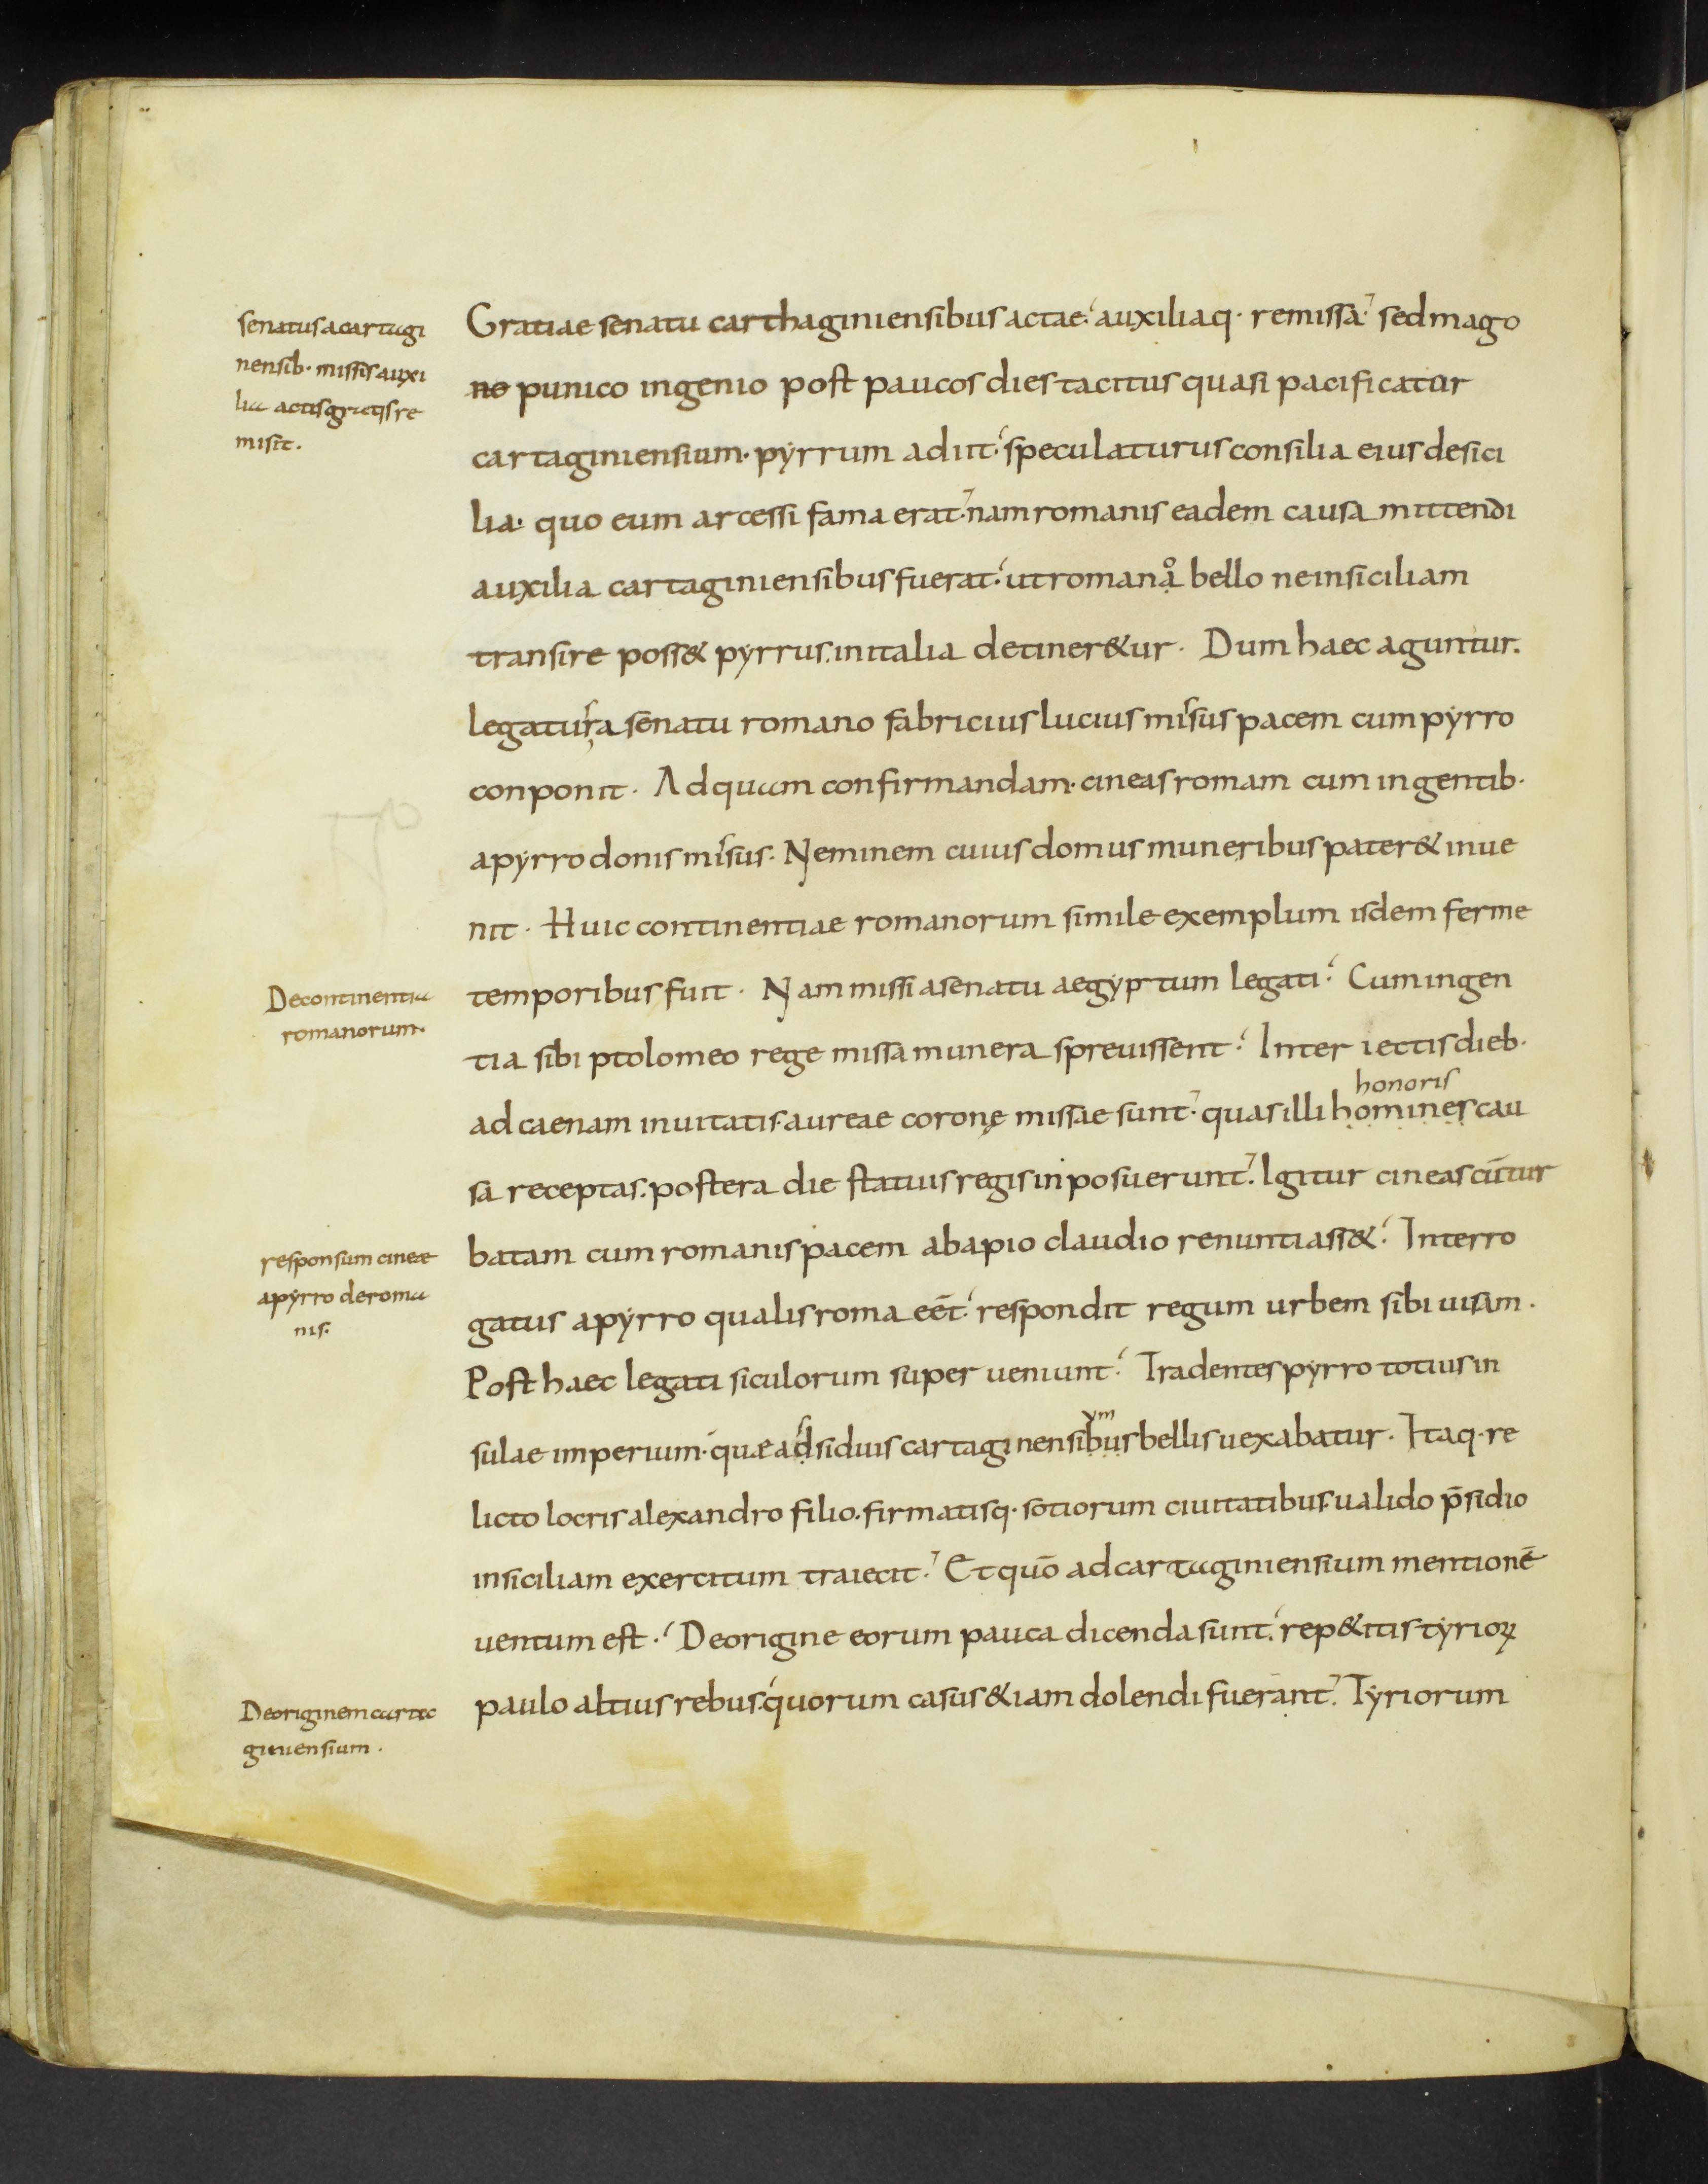 senatus acartagi
nensib· missis auxi
lia actis gratiis re
misit.
Gratiae senatu carthaginiensibus actae· auxiliaq· remissa· sed mago
no punico ingenio post paucos dies tacitus quasi pacificatur
cartaginiensium· pyrrum adiit· speculaturus consilia eius desici
lia· quo eum arcessi fama erat· nam romanis eadem causa mittendi
auxilia cartaginiensibus fuerat· ut romana bello ne insiciliam
transire poss& pyrrus· initalia detiner&ur· Dum haec aguntur.
legatus a senatu romano fabricius lucius missus pacem cum pyrro
conponit· Ad quam confirmandam· cineas romam cum ingentib·
apyrro donis missus· Neminem cuius domus muneribus pater& inue
nit· Huic continentiae romanorum simile exemplum isdem ferme
Decontinentia
romanorum·
temporibus fuit· Nam missi asenatu aegyptum legati· Cum ingen
tia sibi ptolomeo rege missa munera spreuissent· Inter iectis dieb·
honoris
ad caenam inuitatis· aureae coronę missae sunt· quas illi homines cau
sa receptas· postera die statuis regis inposuerunt· Igitur cineas cū tur
responsum cineae
apyrro deroma
nis·
batam cum romanis pacem abapio claudio renuntiass&· Interro
gatus apyrro qualis roma eēt· respondit regum urbem sibi uisam·
Post haec legati siculorum super ueniunt· Tradentes pyrro totius in
ym
sulae imperium· quae adsiduis cartaginensibus bellis uexabatur· Itaq· re
licto locris alexandro filio· firmatisq· sotiorum ciuitatibus· ualido p̄sidio
insiciliam exercitum traiecit· Et quō ad cartaginiensium mentionē
uentum est· Deorigine eorum pauca dicenda sunt· rep&itis tyrioꝝ
Deoriginem carta
giniensium·
paulo altius rebus· quorum casus &iam dolendi fuerant· Tyriorum